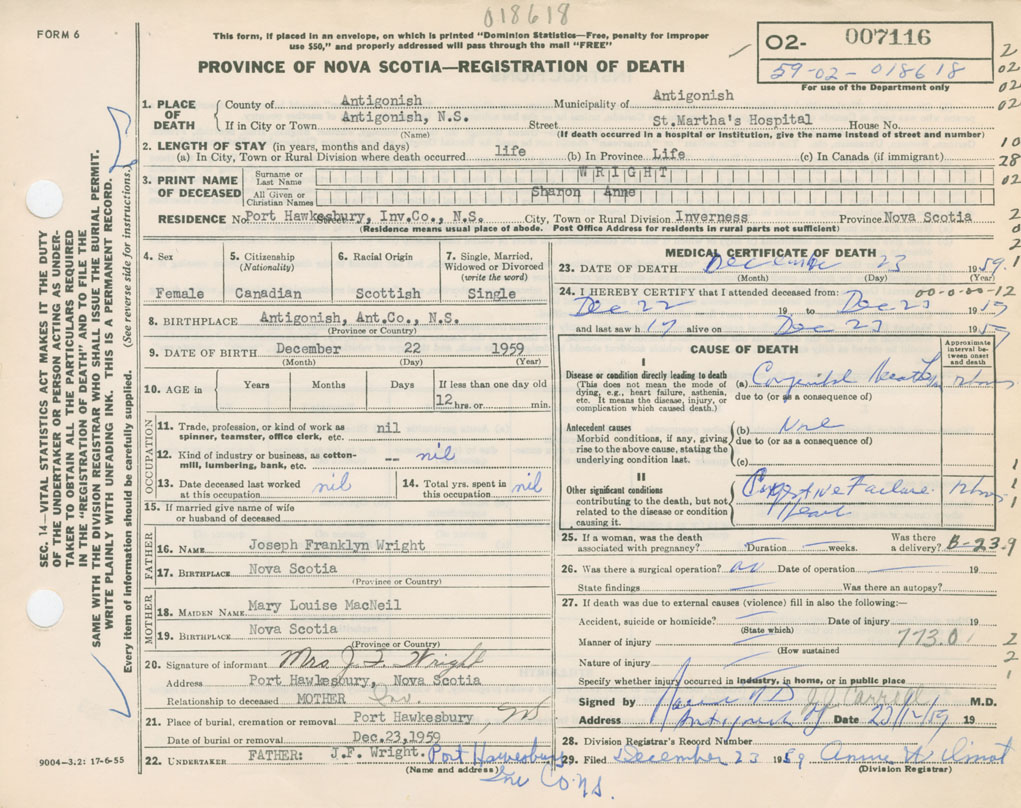 018618
FORM 6
This form, if placed in an envelope, on which is printed "Dominion Statistics—Free, penalty for improper
use $50," and properly addressed will pass through the mail "FREE"
02- 007116
59-02-018618
For use of the Department only
PROVINCE OF NOVA SCOTIA—REGISTRATION OF DEATH
1. PLACE OF DEATH
County of Antigonish Municipality of Antigonish
If in City or Town Antigonish, N.S. Street St.Martha's Hospital House No.
(Name) (If death occurred in a hospital or institution, give the name instead of street and number)
2. LENGTH OF STAY (in years, months and days)
(a) In City, Town or Rural Division where death occurred life (b) In Province Life (c) In Canada (if immigrant)
3. PRINT NAME OF DECEASED
Surname or Last Name WRIGHT
All Given or Christian Names Sharon Anne
RESIDENCE No. Port Hawkesbury, Inv.Co., N.S. City, Town or Rural Division Inverness Province Nova Scotia
(Residence means usual place of abode. Post Office Address for residents in rural parts not sufficient)
4. Sex Female
5. Citizenship (Nationality) Canadian
6. Racial Origin Scottish
7. Single, Married, Widowed or Divorced (write the word) Single
8. BIRTHPLACE Antigonish, Ant.Co., N.S.
(Province or Country)
9. DATE OF BIRTH December 22 1959
(Month) (Day) (Year)
10. AGE in Years Months Days If less than one day old
12 hrs. or min.
OCCUPATION
11. Trade, profession or kind of work as
spinner, teamster, office clerk, etc. nil
12. Kind of industry or business, as cotton-
mill, lumbering, bank, etc. -- nil
13. Date deceased last worked
at this occupation nil
14. Total yrs. spent in
this occupation nil
15. If married give name of wife
or husband of deceased
FATHER
16. NAME Joseph Franklyn Wright
17. BIRTHPLACE Nova Scotia
(Province or Country)
MOTHER
18. MAIDEN NAME Mary Louise MacNeil
19. BIRTHPLACE Nova Scotia
(Province or Country)
20. Signature of informant Mrs. J. F. Wright
Address Port Hawkesbury, Nova Scotia
Relationship to deceased MOTHER
21. Place of burial, cremation or removal Port Hawkesbury
Date of burial or removal Dec.23,1959
22. UNDERTAKER FATHER: J.F. Wright. Port Hawkesbury
(Name and address) Inv Co NS.
MEDICAL CERTIFICATE OF DEATH
23. DATE OF DEATH December 23 1959.
(Month) (Day) (Year)
24. I HEREBY CERTIFY that I attended deceased from: 00-0-00-12
Dec 22 19 to Dec 23 19
and last saw h alive on Dec 23 19
CAUSE OF DEATH
Approximate interval between onset and death
I
Disease or condition directly leading to death
(This does not mean the mode of
dying, e.g., heart failure, asthenia,
etc. It means the disease, injury, or
complication which caused death.)
(a) Congenital
due to (or as a consequence of)
Antecedent causes
Morbid conditions, if any, giving
rise to the above cause, stating the
underlying condition last.
(b)
due to (or as a consequence of)
(c)
II
Other significant conditions
contributing to the death, but not
related to the disease or condition
causing it.
Failure
Heart
25. If a woman, was the death
associated with pregnancy? Duration weeks. Was there
a delivery? B-23.9
26. Was there a surgical operation? no Date of operation 19
State findings Was there an autopsy?
27. If death was due to external causes (violence) fill in also the following:—
Accident, suicide or homicide? Date of injury 19
(State which)
Manner of injury 773.0
(How sustained
Nature of injury
Specify whether injury occurred in industry, in home, or in public place
Signed by J.J. Carroll M.D.
Address Antigonish Date 23/12/59 19
28. Division Registrar's Record Number
29. Filed December 23 1959
(Division Registrar)
SEC. 14—VITAL STATISTICS ACT MAKES IT THE DUTY
OF THE UNDERTAKER OR PERSON ACTING AS UNDER-
TAKER TO OBTAIN ALL THE PARTICULARS REQUIRED
IN THE "REGISTRATION OF DEATH" AND TO FILE THE
SAME WITH THE DIVISION REGISTRAR WHO SHALL ISSUE THE BURIAL PERMIT.
WRITE PLAINLY WITH UNFADING INK. THIS IS A PERMANENT RECORD.
Every item of information should be carefully supplied. (See reverse side for instructions.)
9004—3.2: 17-6-55
2
02
02
10
28
02
2
0
2
1
1
1
1
2
2
1